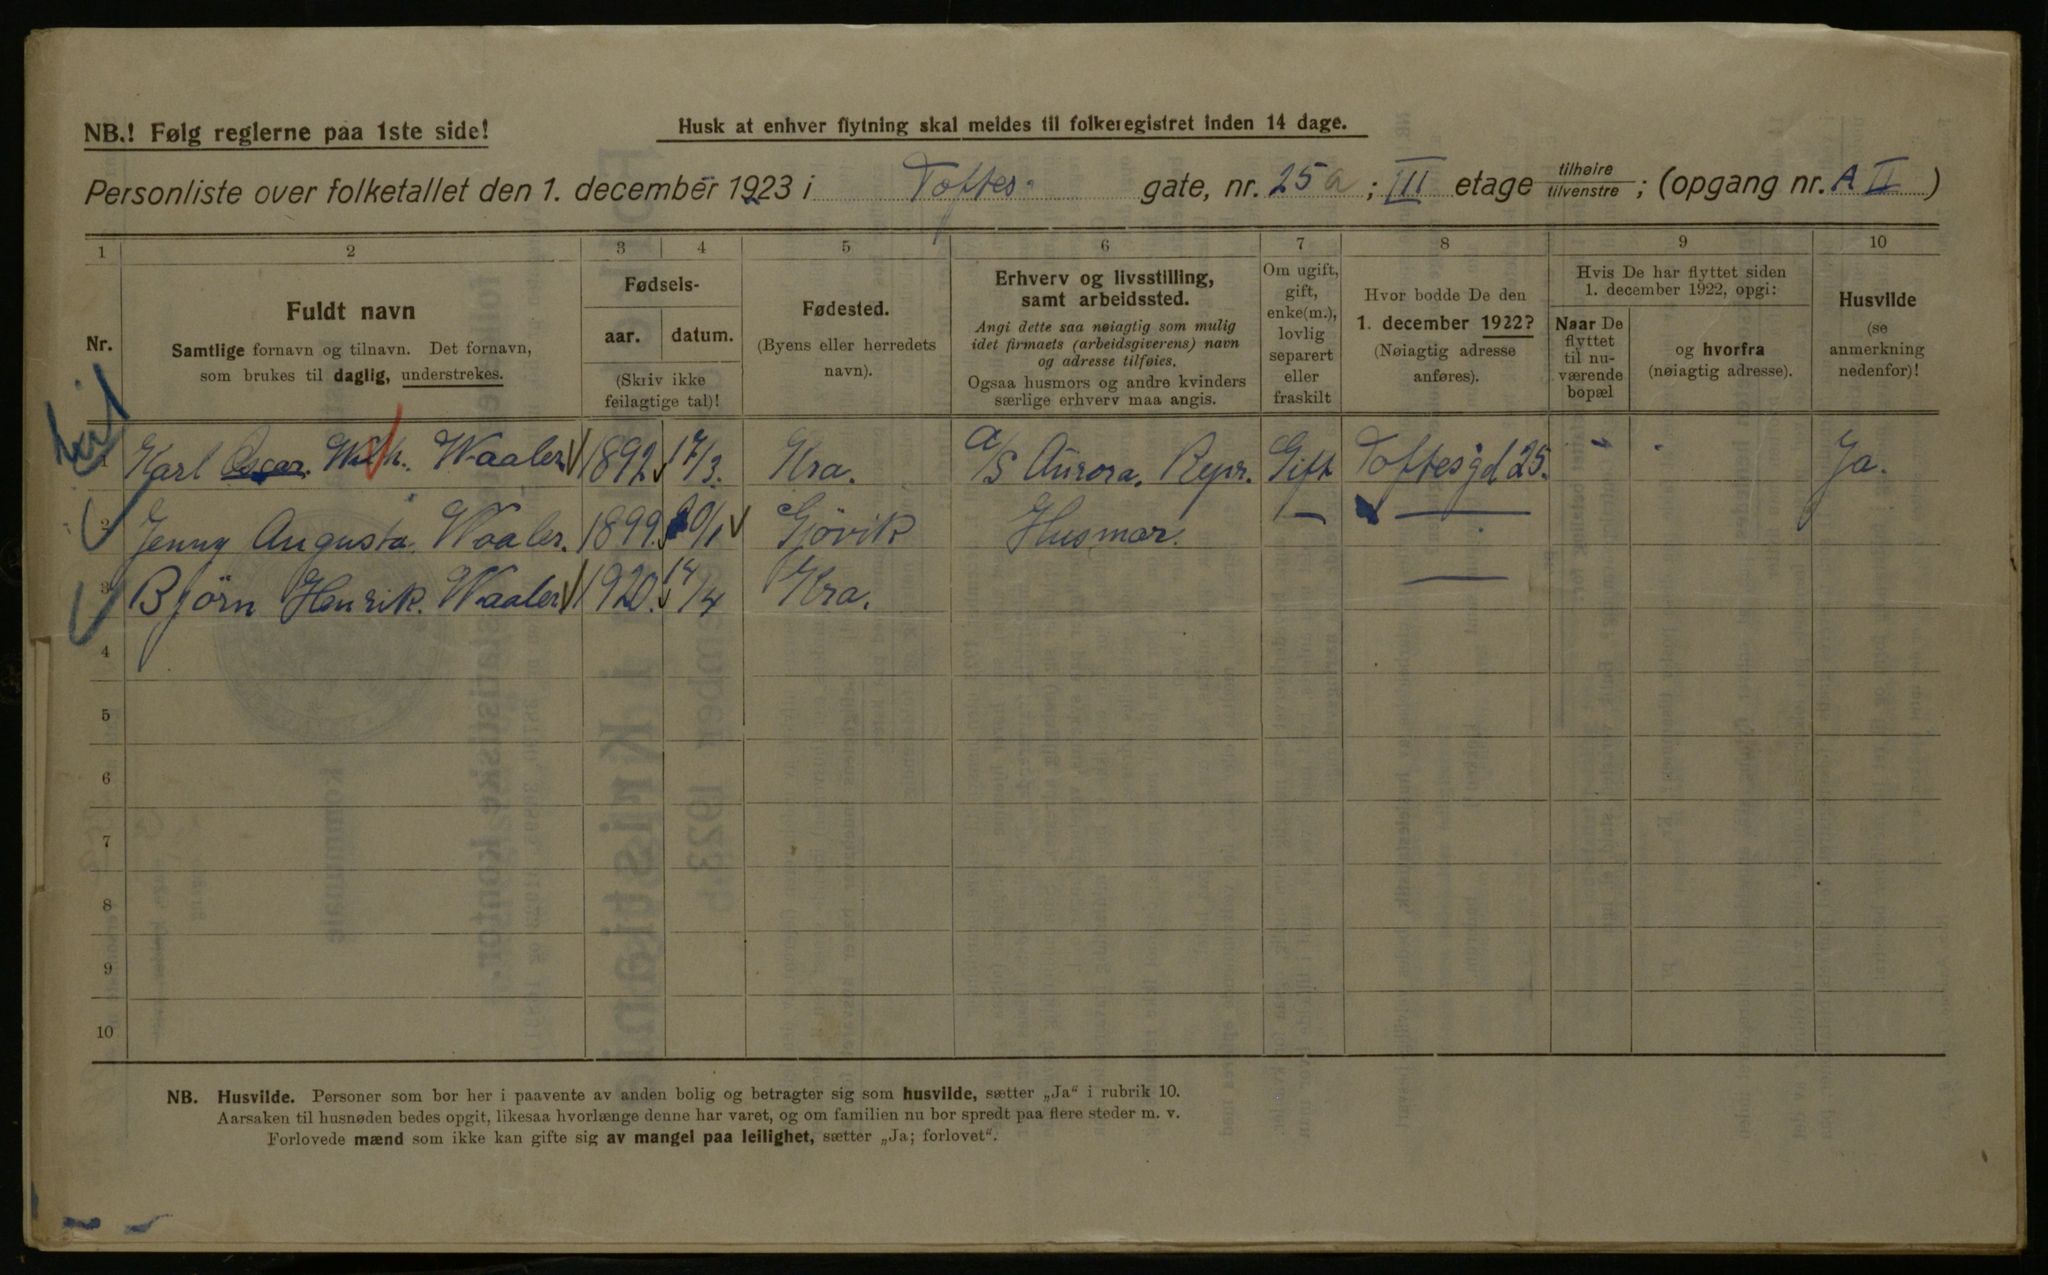 NB.! Følg reglerne paa 1ste side!
Husk at enhver flytning skal meldes til folkeregistret inden 14 dage.
Personliste over folketallet den 1. december 1923 i Toftes gate, nr. 25 a ; III etage tilhøire tilvenstre ; (opgang nr. A II )
1 2 3 4 5 6 7 8 9 10
Nr.
Fuldt navn
Samtlige fornavn og tilnavn. Det fornavn,
som brukes til daglig, understrekes.
Fødsels-
aar. datum.
(Skriv ikke
feilagtige tal)!
Fødested.
(Byens eller herredets
navn).
Erhverv og livsstilling,
samt arbeidssted.
Angi dette saa nøiagtig som mulig
idet firmaets (arbeidsgiverens) navn
og adresse tilføies.
Ogsaa husmors og andre kvinders
særlige erhverv maa angis.
Om ugift,
gift,
enke(m.),
lovlig
separert
eller
fraskilt
Hvor bodde De den
1. december 1922?
(Nøiagtig adresse
anføres).
Hvis De har flyttet siden
1. december 1922, opgi:
Naar De
flyttet
til nu-
værende
bopæl
og hvorfra
(nøiagtig adresse).
Husvilde
(se
anmerkning
nedenfor)!
1 Karl Oscar. Wilh. Waaler 1892 17/3. Kra. A/S Aurora. Repr. Gift Toftesgd 25. " Ja.
2 Jenny Augusta Waaler. 1899. 20/1 Gjövik Husmor. — —
3 Björn Henrik. Waaler 1920. 14/4 Kra. —
4
5
6
7
8
9
10
NB. Husvilde. Personer som bor her i paavente av anden bolig og betragter sig som husvilde, sætter „Ja“ i rubrik 10.
Aarsaken til husnøden bedes opgit, likesaa hvorlænge denne har varet, og om familien nu bor spredt paa flere steder m. v.
Forlovede mænd som ikke kan gifte sig av mangel paa leilighet, sætter „Ja; forlovet“.